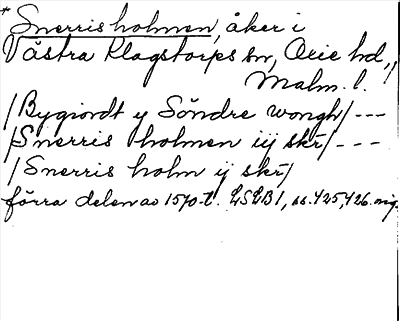 * Snerris holmen, åker i
Västra Klagstorps sn, Oxie hd,
Malm. l.
/Bygiordt y Söndre wongh/ ---
/Snerris holmen iij skr/ ---
/Snerris holm ij skr/
förra delen av 1570-t. LSLB1, ss. 425, 426. orig.